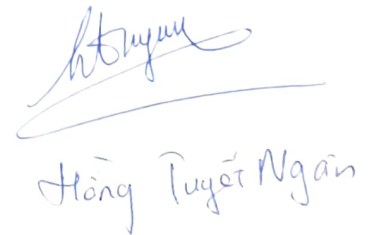 Hồng Tuyết Ngân